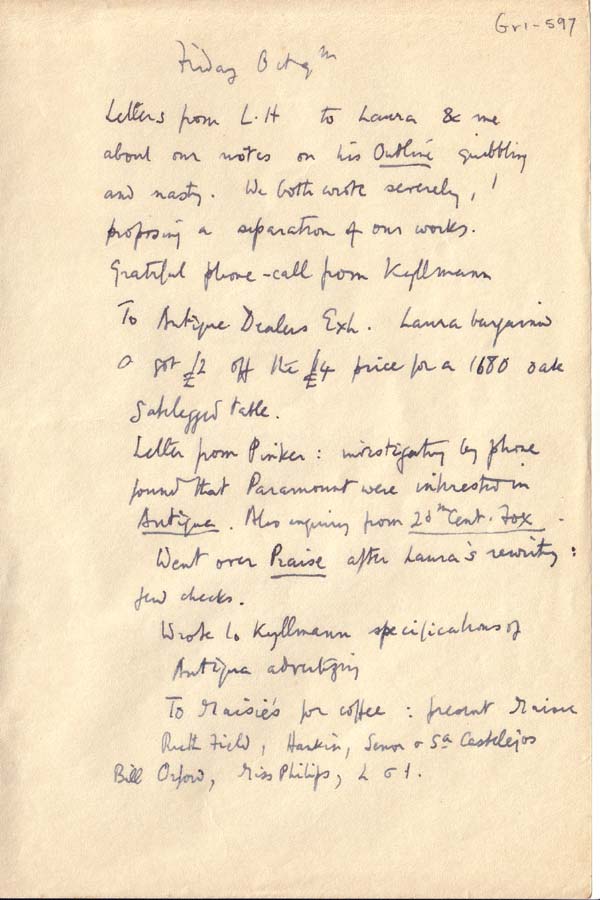 Gr1-597
Friday Oct 9th
Letters from L.H to Laura & me
about our notes on his Outline quibbling
and nasty. We both wrote severely, I
proposing a separation of our works.
Grateful phone-call from Kyllmann
To Antique Dealers Exh. Laura bargained
& got £2 off the £14 price for a 1680 oak
Gatelegged table.
Letter from Pinker: investigating by phone
found that Paramount were interested in
Antigua. Also inquiry from 20th Cent. Fox.
Went over Praise after Laura's rewriting:
few checks.
Wrote to Kyllmann specifications of
Antigua advertizing
To Maisie's for coffee: present Maisie
Ruth Field, Hankin, Senor & Sa Castelejos
Bill Orford, Miss Philips, L & I.